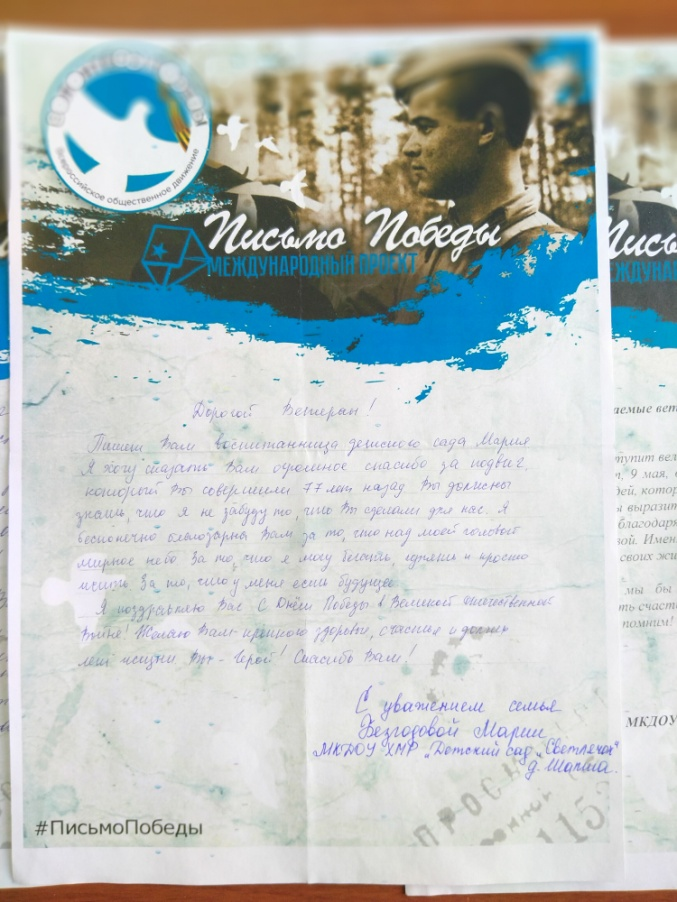 Всероссийское общественное движение
Письмо Победы
МЕЖДУНАРОДНЫЙ ПРОЕКТ
Дорогой Ветеран!
Пишет Вам воспитанница детского сада Мария
Я хочу сказать Вам огромное спасибо за подвиг,
который Вы совершили 77 лет назад Вы должны
знать, что я не забуду то, что Вы сделали для нас. Я
бесконечно благодарна Вам за то, что над моей головой
мирное небо За то, что я могу бегать, гулять и просто
жить За то, что у меня есть будущее
Я поздравляю Вас С Днём Победы в Великой Отечественной
Войне! Желаю Вам крепкого здоровья, счастья и долгих
лет жизни Вы - Герой! Спасибо Вам!
С уважением семья
Безгодовой Марии
МКДОУ ХМР „Детский сад „Светлячок"
д. Шапша
#ПисьмоПобеды
ПРОС
115
Письм
ЕЖДУНАР
аемые вет
тупит вел
т, 9 мая,
дей, котор
ы выразит
благодар
вой. Имен
своих жи
мы бы
ть счаст
помним!
МКДОУ